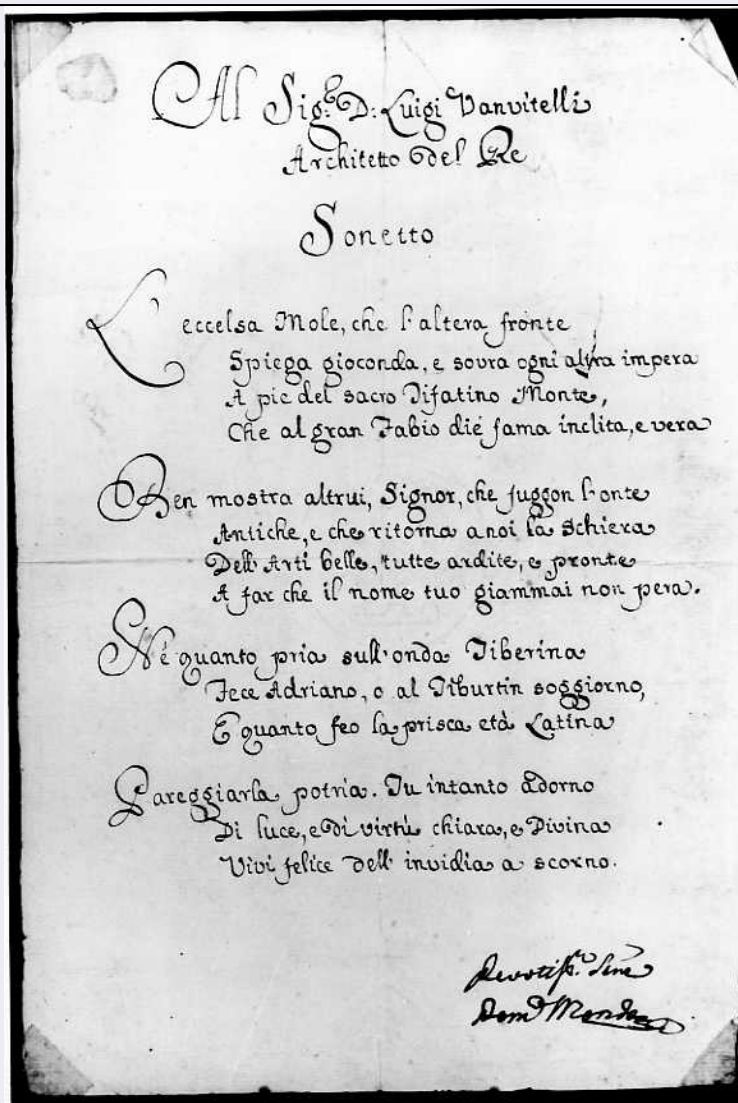 Al Sig.e D: Luigi Vanvitelli
Architetto del Re
Sonetto
L'eccelsa Mole, che l'altera fronte
Spiega gioconda, e sovra ogni altra impera
A piè del sacro Tifatino Monte,
Che al gran Fabio diè fama inclita, e vera
Ben mostra altrui, Signor, che fuggon l'onte
Antiche, e che ritorna a noi la Schiera
Dell'Arti belle, tutte ardite, e pronte
A far che il nome tuo giammai non pera.
Nè quanto pria sull'onda Tiberina
Fece Adriano, o al Tiburtin soggiorno,
E quanto feo la prisca età Latina
Pareggiarla potria. Tu intanto adorno
Di luce, e di virtù chiara, e Divina
Vivi felice dell'invidia a scorno.
Devotiss.o
Dom.o Mondo